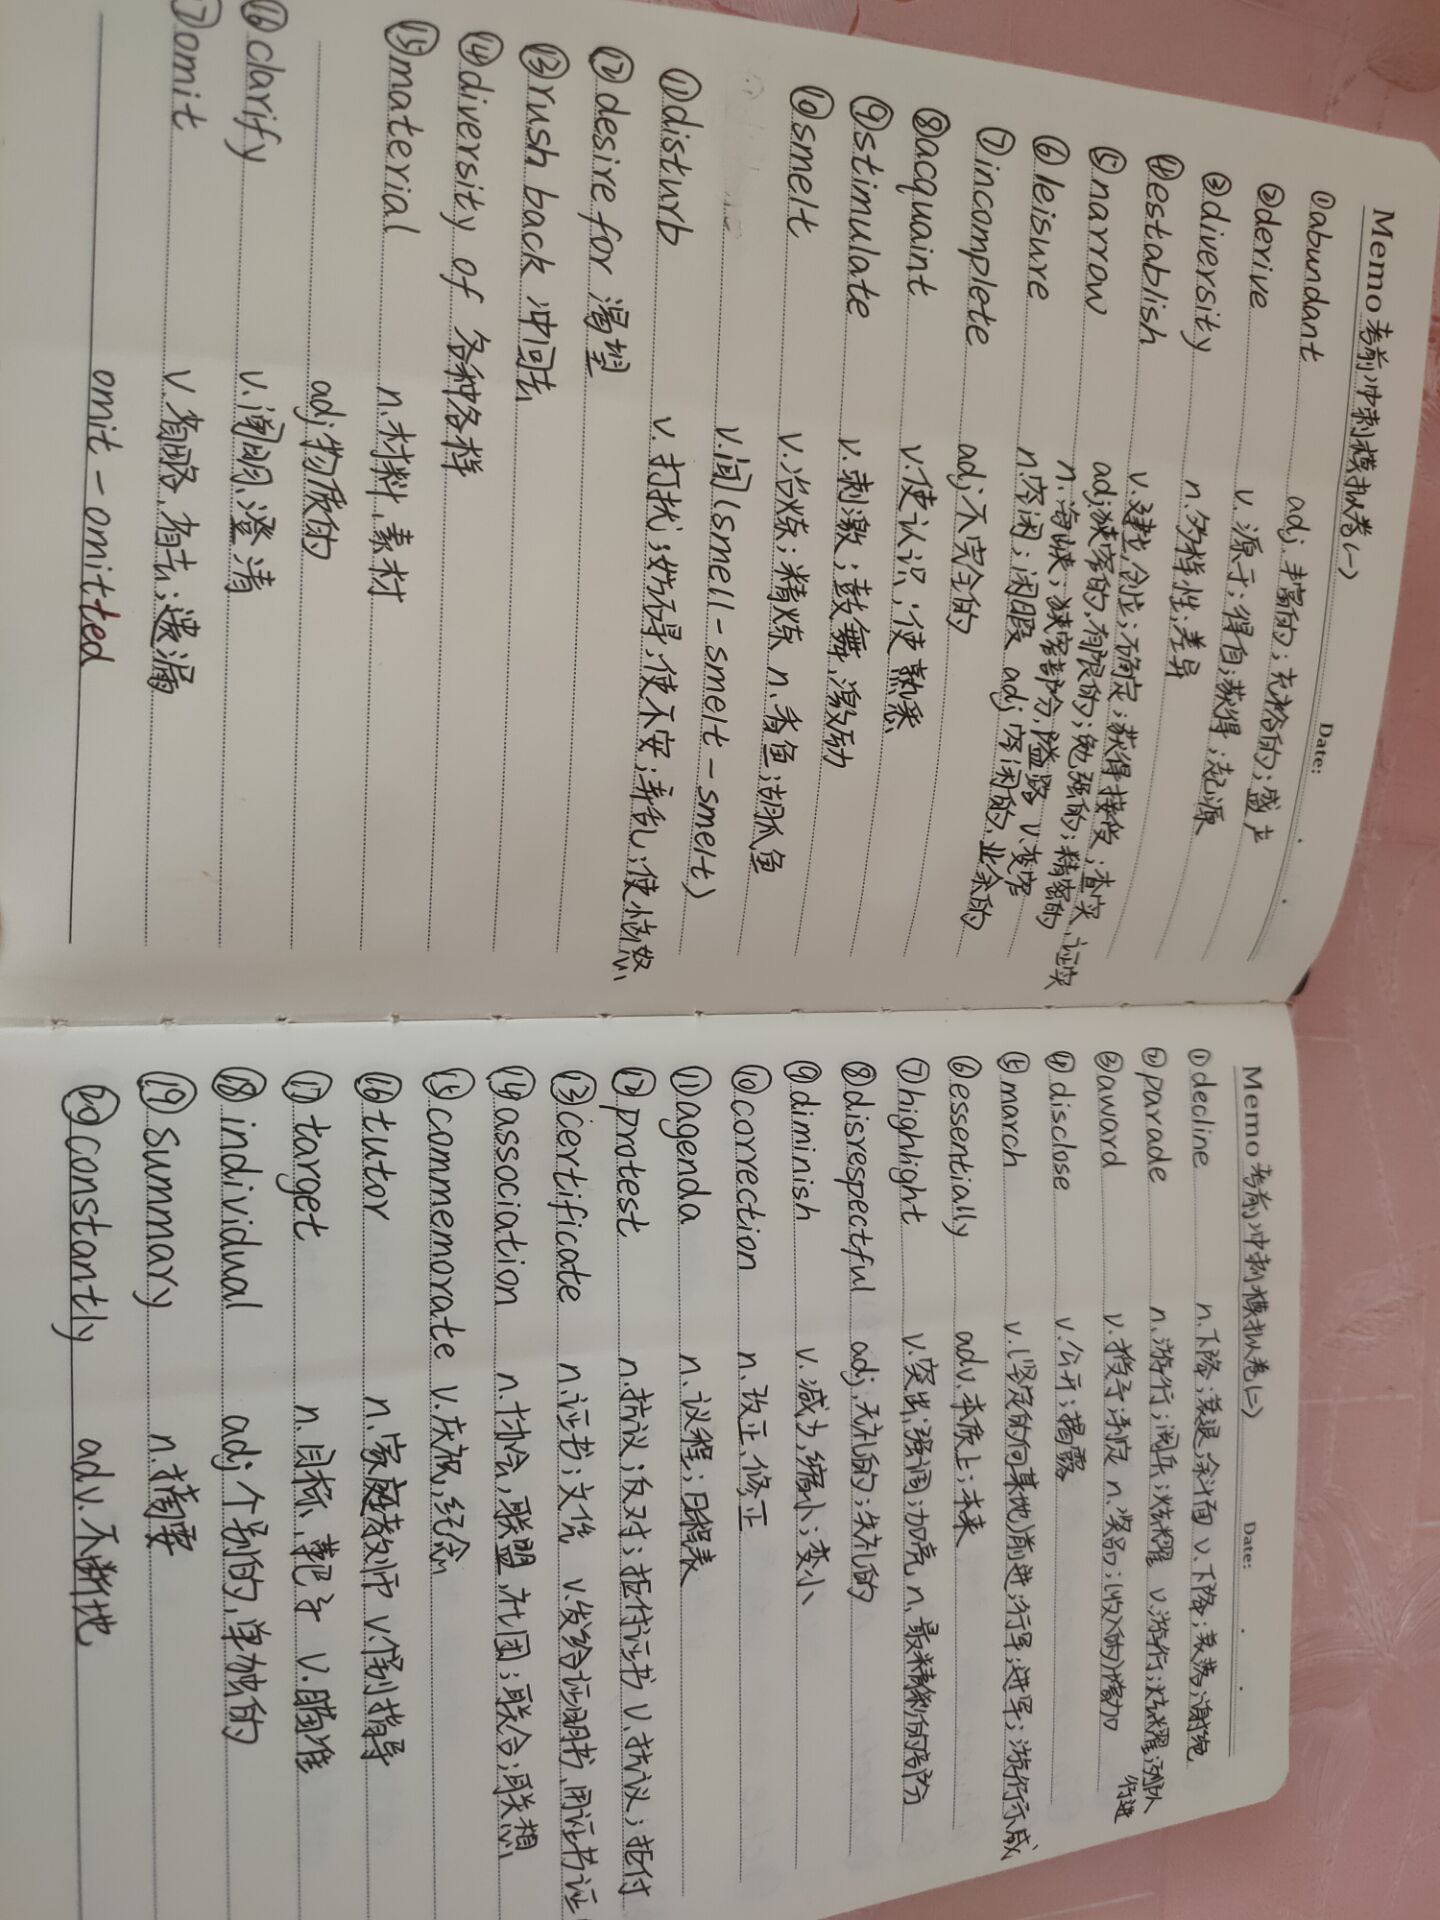 Memo 考前冲刺模拟卷(一)
Date:
①abundant adj.丰富的;充裕的;盛产
②derive v.源于;得自;获得;起源
③diversity n.多样性;差异
④establish v.建立,创立;确定;获得接受;查实,证实
⑤narrow adj.狭窄的,有限的;勉强的;精密的
n.海峡;狭窄部分,隘路 v.变窄
⑥leisure n.空闲;闲暇 adj.空闲的,业余的
⑦incomplete adj.不完全的
⑧acquaint v.使认识;使熟悉
⑨stimulate v.刺激;鼓舞,激励
⑩smelt v.冶炼;精炼 n.香鱼;胡瓜鱼
v.闻(smell-smelt-smelt)
⑪disturb v.打扰;妨碍;使不安;弄乱;使恼怒
⑫desire for 渴望
⑬rush back 冲回去
⑭diversity of 各种各样
⑮material n.材料,素材
adj.物质的
⑯clarify v.阐明,澄清
⑰omit v.省略,省去;遗漏
omit-omitted
Memo 考前冲刺模拟卷(二)
Date:
①decline n.下降;衰退;斜面 v.下降;衰落;谢绝
②parade n.游行;阅兵;炫耀 v.游行;炫耀;列队行进
③award v.授予;判定 n.奖品;(收入的)增加
④disclose v.公开;揭露
⑤march v.(坚定的向某地)前进;行军;进军;游行示威
⑥essentially adv.本质上;本来
⑦highlight v.突出;强调;加亮 n.最精彩的部分
⑧disrespectful adj.无礼的;失礼的
⑨diminish v.减少,缩小;变小
⑩correction n.改正,修正
⑪agenda n.议程;日程表
⑫protest n.抗议;反对;拒付证书 v.抗议;拒付
⑬certificate n.证书;文凭 v.发给证明书,用证书证
⑭association n.协会,联盟,社团;联合;联想
⑮commemorate v.庆祝,纪念
⑯tutor n.家庭教师 v.个别指导
⑰target n.目标,靶子 v.瞄准
⑱individual adj.个别的,单独的
⑲summary n.摘要
⑳constantly adv.不断地